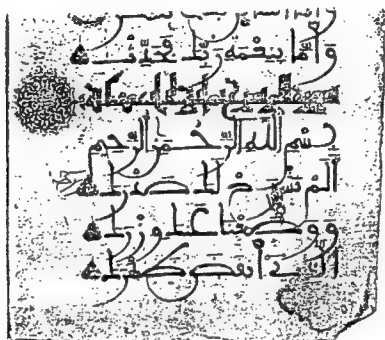 وَأَمَّا بِنِعْمَةِ رَبِّكَ فَحَدِّثْ
بِسْمِ اللَّهِ الرَّحْمَنِ الرَّحِيمِ
أَلَمْ نَشْرَحْ لَكَ صَدْرَكَ
وَوَضَعْنَا عَنكَ وِزْرَكَ
الَّذِي أَنقَضَ ظَهْرَكَ